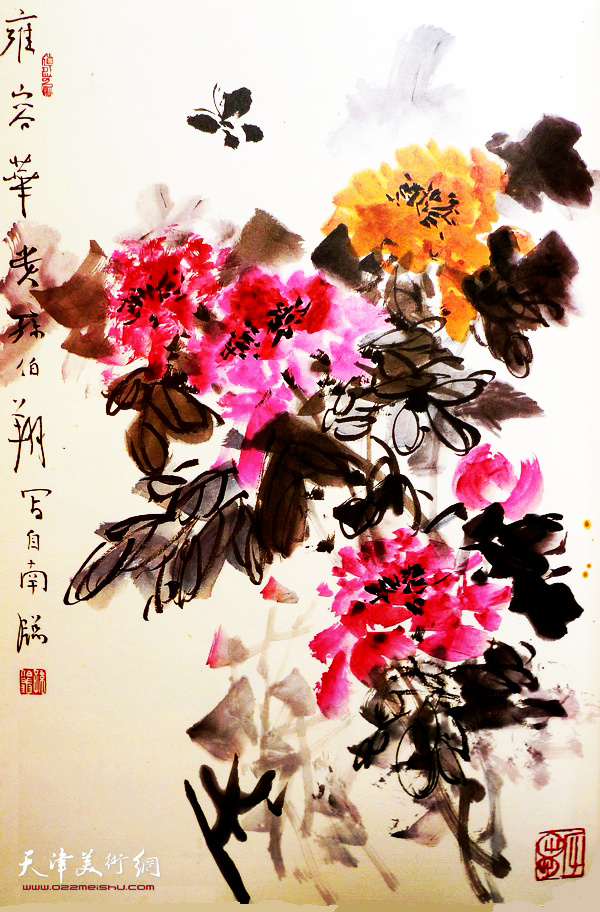 雍容華贵孫伯翔写自南
天津美術網
www.022meishu.com